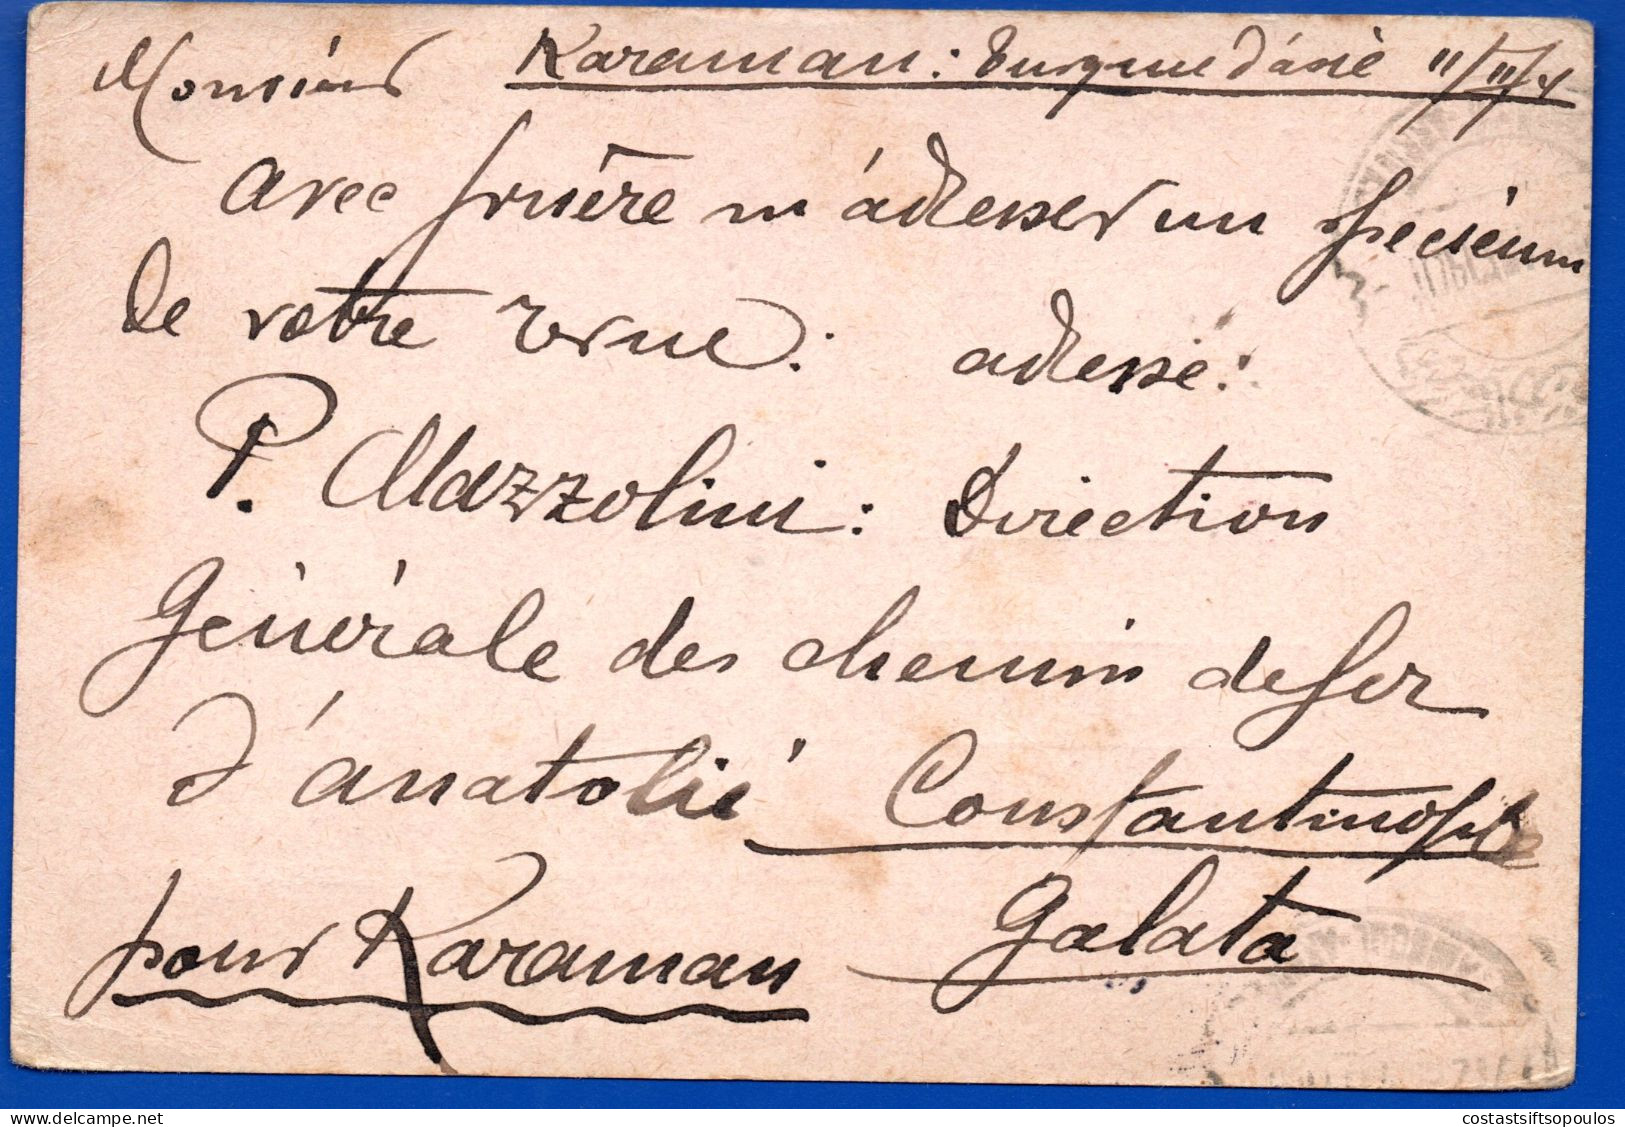 Karaman: Turquie d'asie 11/11/4
Monsieur
avec prière m'adresser un specieum
de votre revue: adresse:
P. Mazzolini: Direction
Générale des chemin de fer
d'anatolie Constantinople
Galata
pour Karaman
costastsiftsopoulos